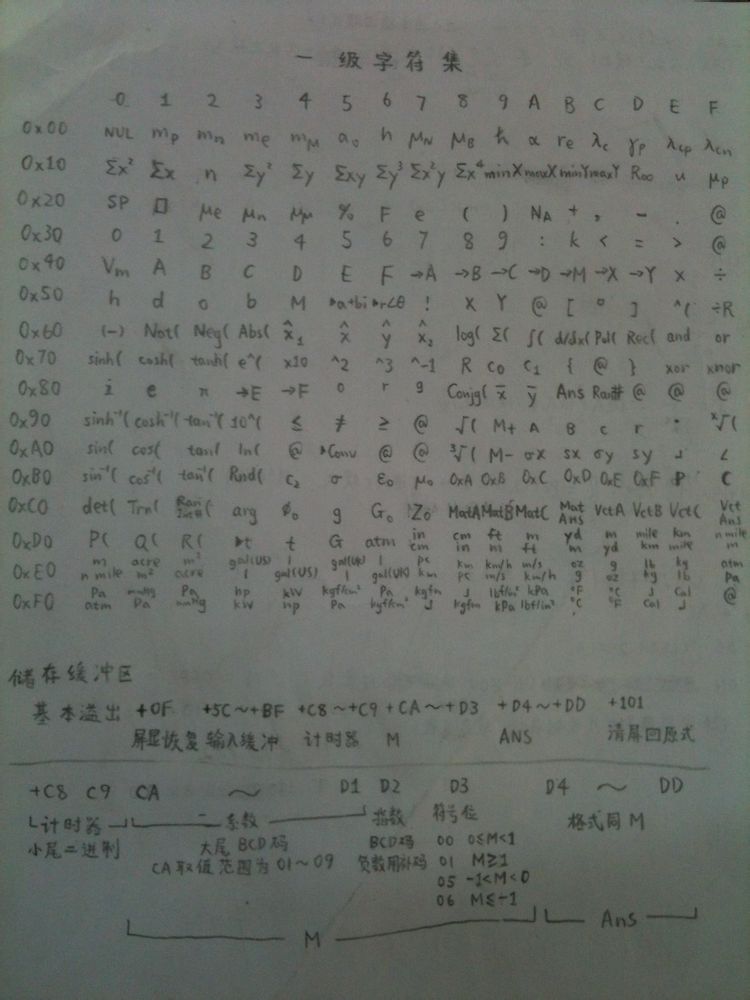 一级字符集
0 1 2 3 4 5 6 7 8 9 A B C D E F
0x00 NUL mp mn me mμ a₀ h μN μB ħ α re λc γp λcp λcn
0x10 Σx² Σx n Σy² Σy Σxy Σy³ Σx²y Σx⁴ minX maxX minY maxY R∞ u μp
0x20 SP μe μn μμ % F e ( ) NA + , - . @
0x30 0 1 2 3 4 5 6 7 8 9 : k < = > @
0x40 Vm A B C D E F →A →B →C →D →M →X →Y × ÷
0x50 h d o b M ▸a+bi ▸r∠θ ! X Y @ [ ° ] ^( ÷R
0x60 (-) Not( Neg( Abs( x̂₁ x̂ ŷ x̂₂ log( Σ( ∫( d/dx( Pol( Rec( and or
0x70 sinh( cosh( tanh( e^( x10 ^2 ^3 ^-1 R c₀ c₁ { @ } xor xnor
0x80 i e π →E →F o r g Conjg( x̄ ȳ Ans Ran# @ @ @
0x90 sinh⁻¹( cosh⁻¹( tan⁻¹( 10^( ≤ ≠ ≥ @ √( M+ A B c r ˣ√(
0xA0 sin( cos( tan( ln( @ ▸Conv @ @ ³√( M- σx sx σy sy ⌟ ∠
0xB0 sin⁻¹( cos⁻¹( tan⁻¹( Rnd( c₂ σ ε₀ μ₀ 0xA 0xB 0xC 0xD 0xE 0xF P C
0xC0 det( Trn( RanInt#( arg ϕ₀ g G₀ Z₀ MatA MatB MatC MatAns VctA VctB VctC VctAns
0xD0 P( Q( R( ▸t t G atm in cm ft m yd m mile km n mile
cm in m ft m yd km mile m
0xE0 m acre m² gal(US) l gal(UK) l pc km km/h m/s oz g lb kg atm
n mile m² acre l gal(US) l gal(UK) km pc m/s km/h g oz kg lb Pa
0xF0 Pa mmHg Pa hp kW kgf/cm² Pa kgfm J lbf/in² kPa °F °C J Cal @
atm Pa mmHg kW hp Pa kgf/cm² J kgfm kPa lbf/in² °C °F Cal J
储存缓冲区
基本溢出 +0F +5C～+BF +C8～+C9 +CA～+D3 +D4～+DD +101
屏显恢复 输入缓冲 计时器 M ANS 清屏回原式
+C8 C9 CA ～ D1 D2 D3 D4 ～ DD
计时器 系数 指数 符号位 格式同M
小尾二进制 大尾BCD码 BCD码 00 0≤M<1
CA取值范围为01～09 负数用补码 01 M≥1
05 -1<M<0
06 M≤-1
M Ans